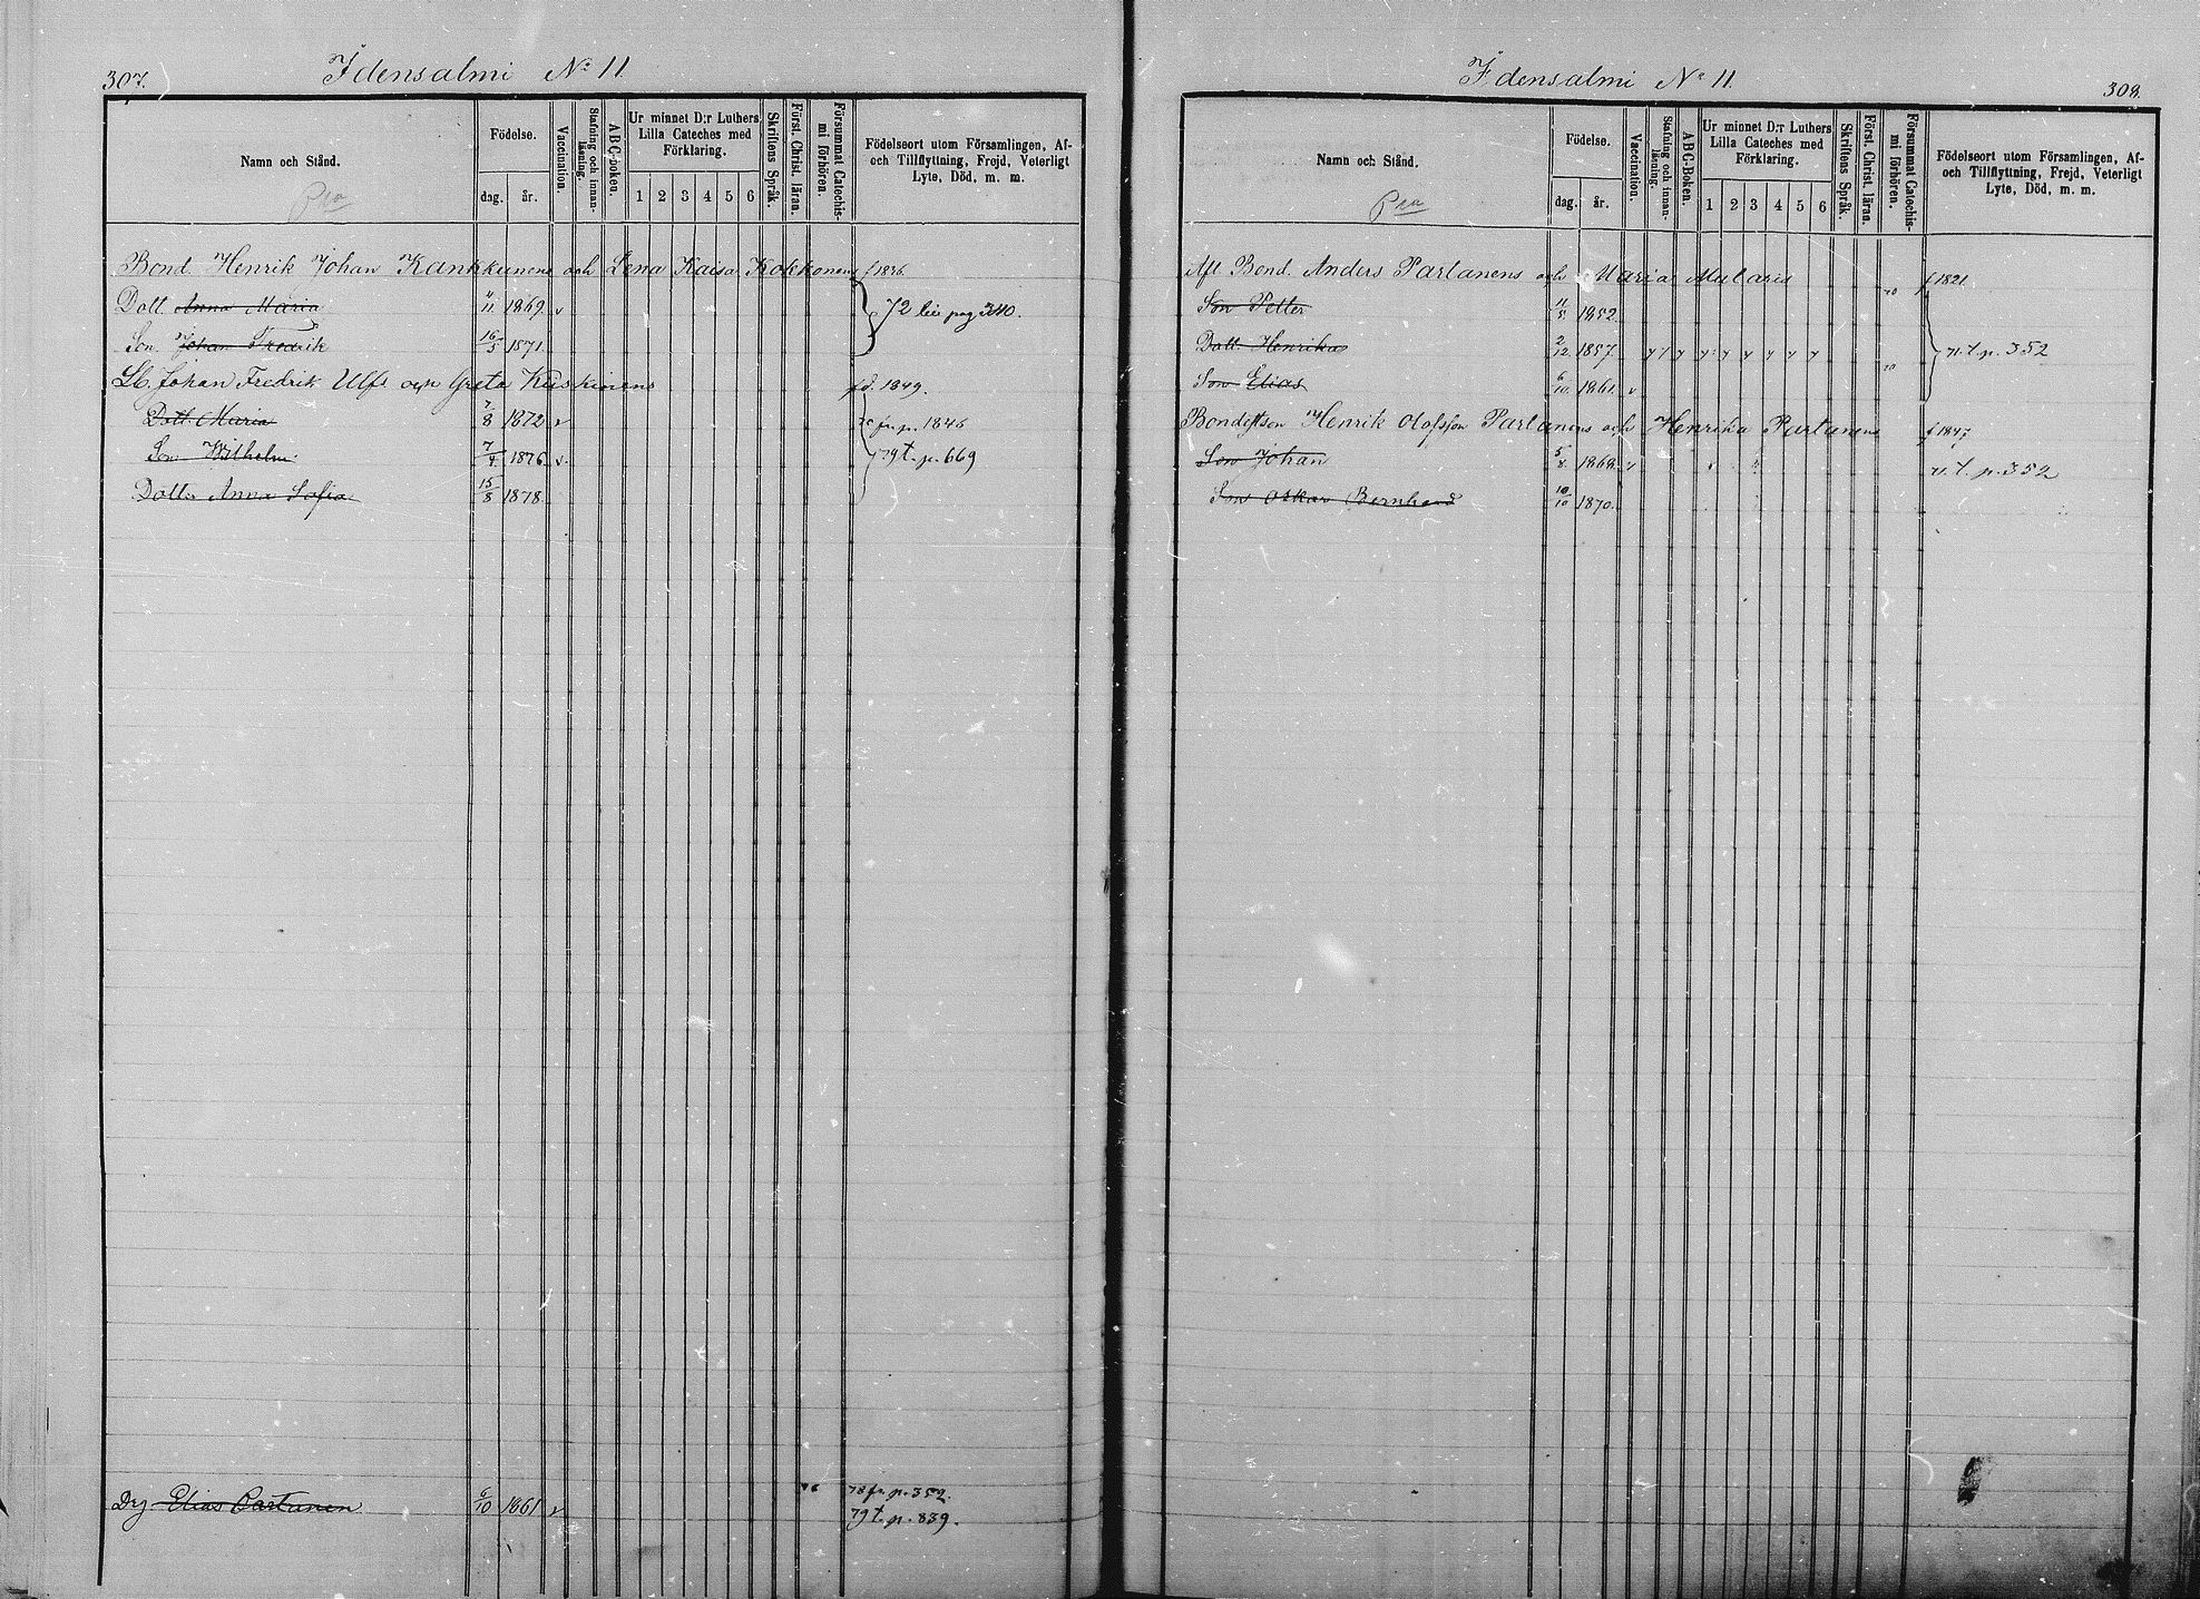 307.
Idensalmi No 11.
Namn och Stånd.
Födelse.
dag. år.
Vaccination.
Stafning och innan-
läsning.
ABC-boken.
Ur minnet D:r Luthers
Lilla Cateches med
Förklaring.
1 2 3 4 5 6
Skriftens Språk.
Först. Christ. läran.
Försummat Catechis-
mi förhören.
Födelseort utom Församlingen, Af-
och Tillflyttning, Frejd, Veterligt
Lyte, Död, m. m.
Bond. Henrik Johan Kankkunens och Lena Kaisa Kokkonens f 1836.
Dott. Anna Maria 4/11 1869. v 72 pag 340.
Son. Johan Fredrik 16/5 1871.
Johan Fredrik Ulfs och Greta Kiiskinens fd. 1849.
Dott. Maria 7/8 1872 v fr. p. 1846
Son Wilhelm 7/4 1876 v. 79 t. p. 669
Dottr Anna Sofia 15/8 1878.
Drg Elias Partanen 6/10 1861 v 78 fr. p. 352.
79 t. p. 839.
308.
Idensalmi No 11.
Namn och Stånd.
Födelse.
dag. år.
Vaccination.
Stafning och innan-
läsning.
ABC-Boken.
Ur minnet D:r Luthers
Lilla Cateches med
Förklaring.
1 2 3 4 5 6
Skriftens Språk.
Först. Christ. läran.
Försummat Catechis-
mi förhören.
Födelseort utom Församlingen, Af-
och Tillflyttning, Frejd, Veterligt
Lyte, Död, m. m.
Afl Bond. Anders Partanens och Maria f 1821
Son Petter 11/5 1852.
Dott. Henrika 2/12 1857. t. p. 352
Son Elias 6/10 1861. v
Henrik Olofsson Partanens och Henrika Partanens f 1847
Son Johan 1868. v t. p. 352
Son Oskar Bernhard 10/10 1870.